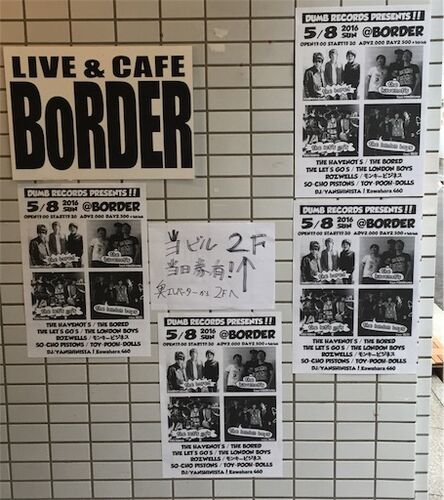 LIVE & CAFE
BoRDER
DUMB RECORDS PRESENTS!!
5/8 2016 SUN @BORDER
OPEN19:00 START19:30 ADV2,000 DAY2,500
the bored
the havenot's
the let's go's
the london boys
THE HAVENOT'S / THE BORED
THE LET'S GO'S / THE LONDON BOYS
ROZWELLS / モンキービジネス
SO-CHO PISTONS / TOY-POOH-DOLLS
DJ/YANSHINISTA! Kawahara 460
DUMB RECORDS PRESENTS!!
5/8 2016 SUN @BORDER
OPEN19:00 START19:30 ADV2,000 DAY2,500
the bored
the havenot's
the let's go's
the london boys
THE HAVENOT'S / THE BORED
THE LET'S GO'S / THE LONDON BOYS
ROZWELLS / モンキービジネス
SO-CHO PISTONS / TOY-POOH-DOLLS
DJ/YANSHINISTA! Kawahara 460
当ビル 2F
当日券有!↑
奥エレベーターから 2Fへ
DUMB RECORDS PRESENTS!!
5/8 2016 SUN @BORDER
OPEN19:00 START19:30 ADV2,000 DAY2,500
the bored
the havenot's
the let's go's
the london boys
THE HAVENOT'S / THE BORED
THE LET'S GO'S / THE LONDON BOYS
ROZWELLS / モンキービジネス
SO-CHO PISTONS / TOY-POOH-DOLLS
DJ/YANSHINISTA! Kawahara 460
DUMB RECORDS PRESENTS!!
5/8 2016 SUN @BORDER
OPEN19:00 START19:30 ADV2,000 DAY2,500
the bored
the havenot's
the let's go's
the london boys
THE HAVENOT'S / THE BORED
THE LET'S GO'S / THE LONDON BOYS
ROZWELLS / モンキービジネス
SO-CHO PISTONS / TOY-POOH-DOLLS
DJ/YANSHINISTA! Kawahara 460